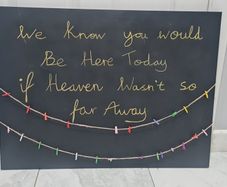 We Know you would
Be Here Today
if Heaven Wasn't so
far Away